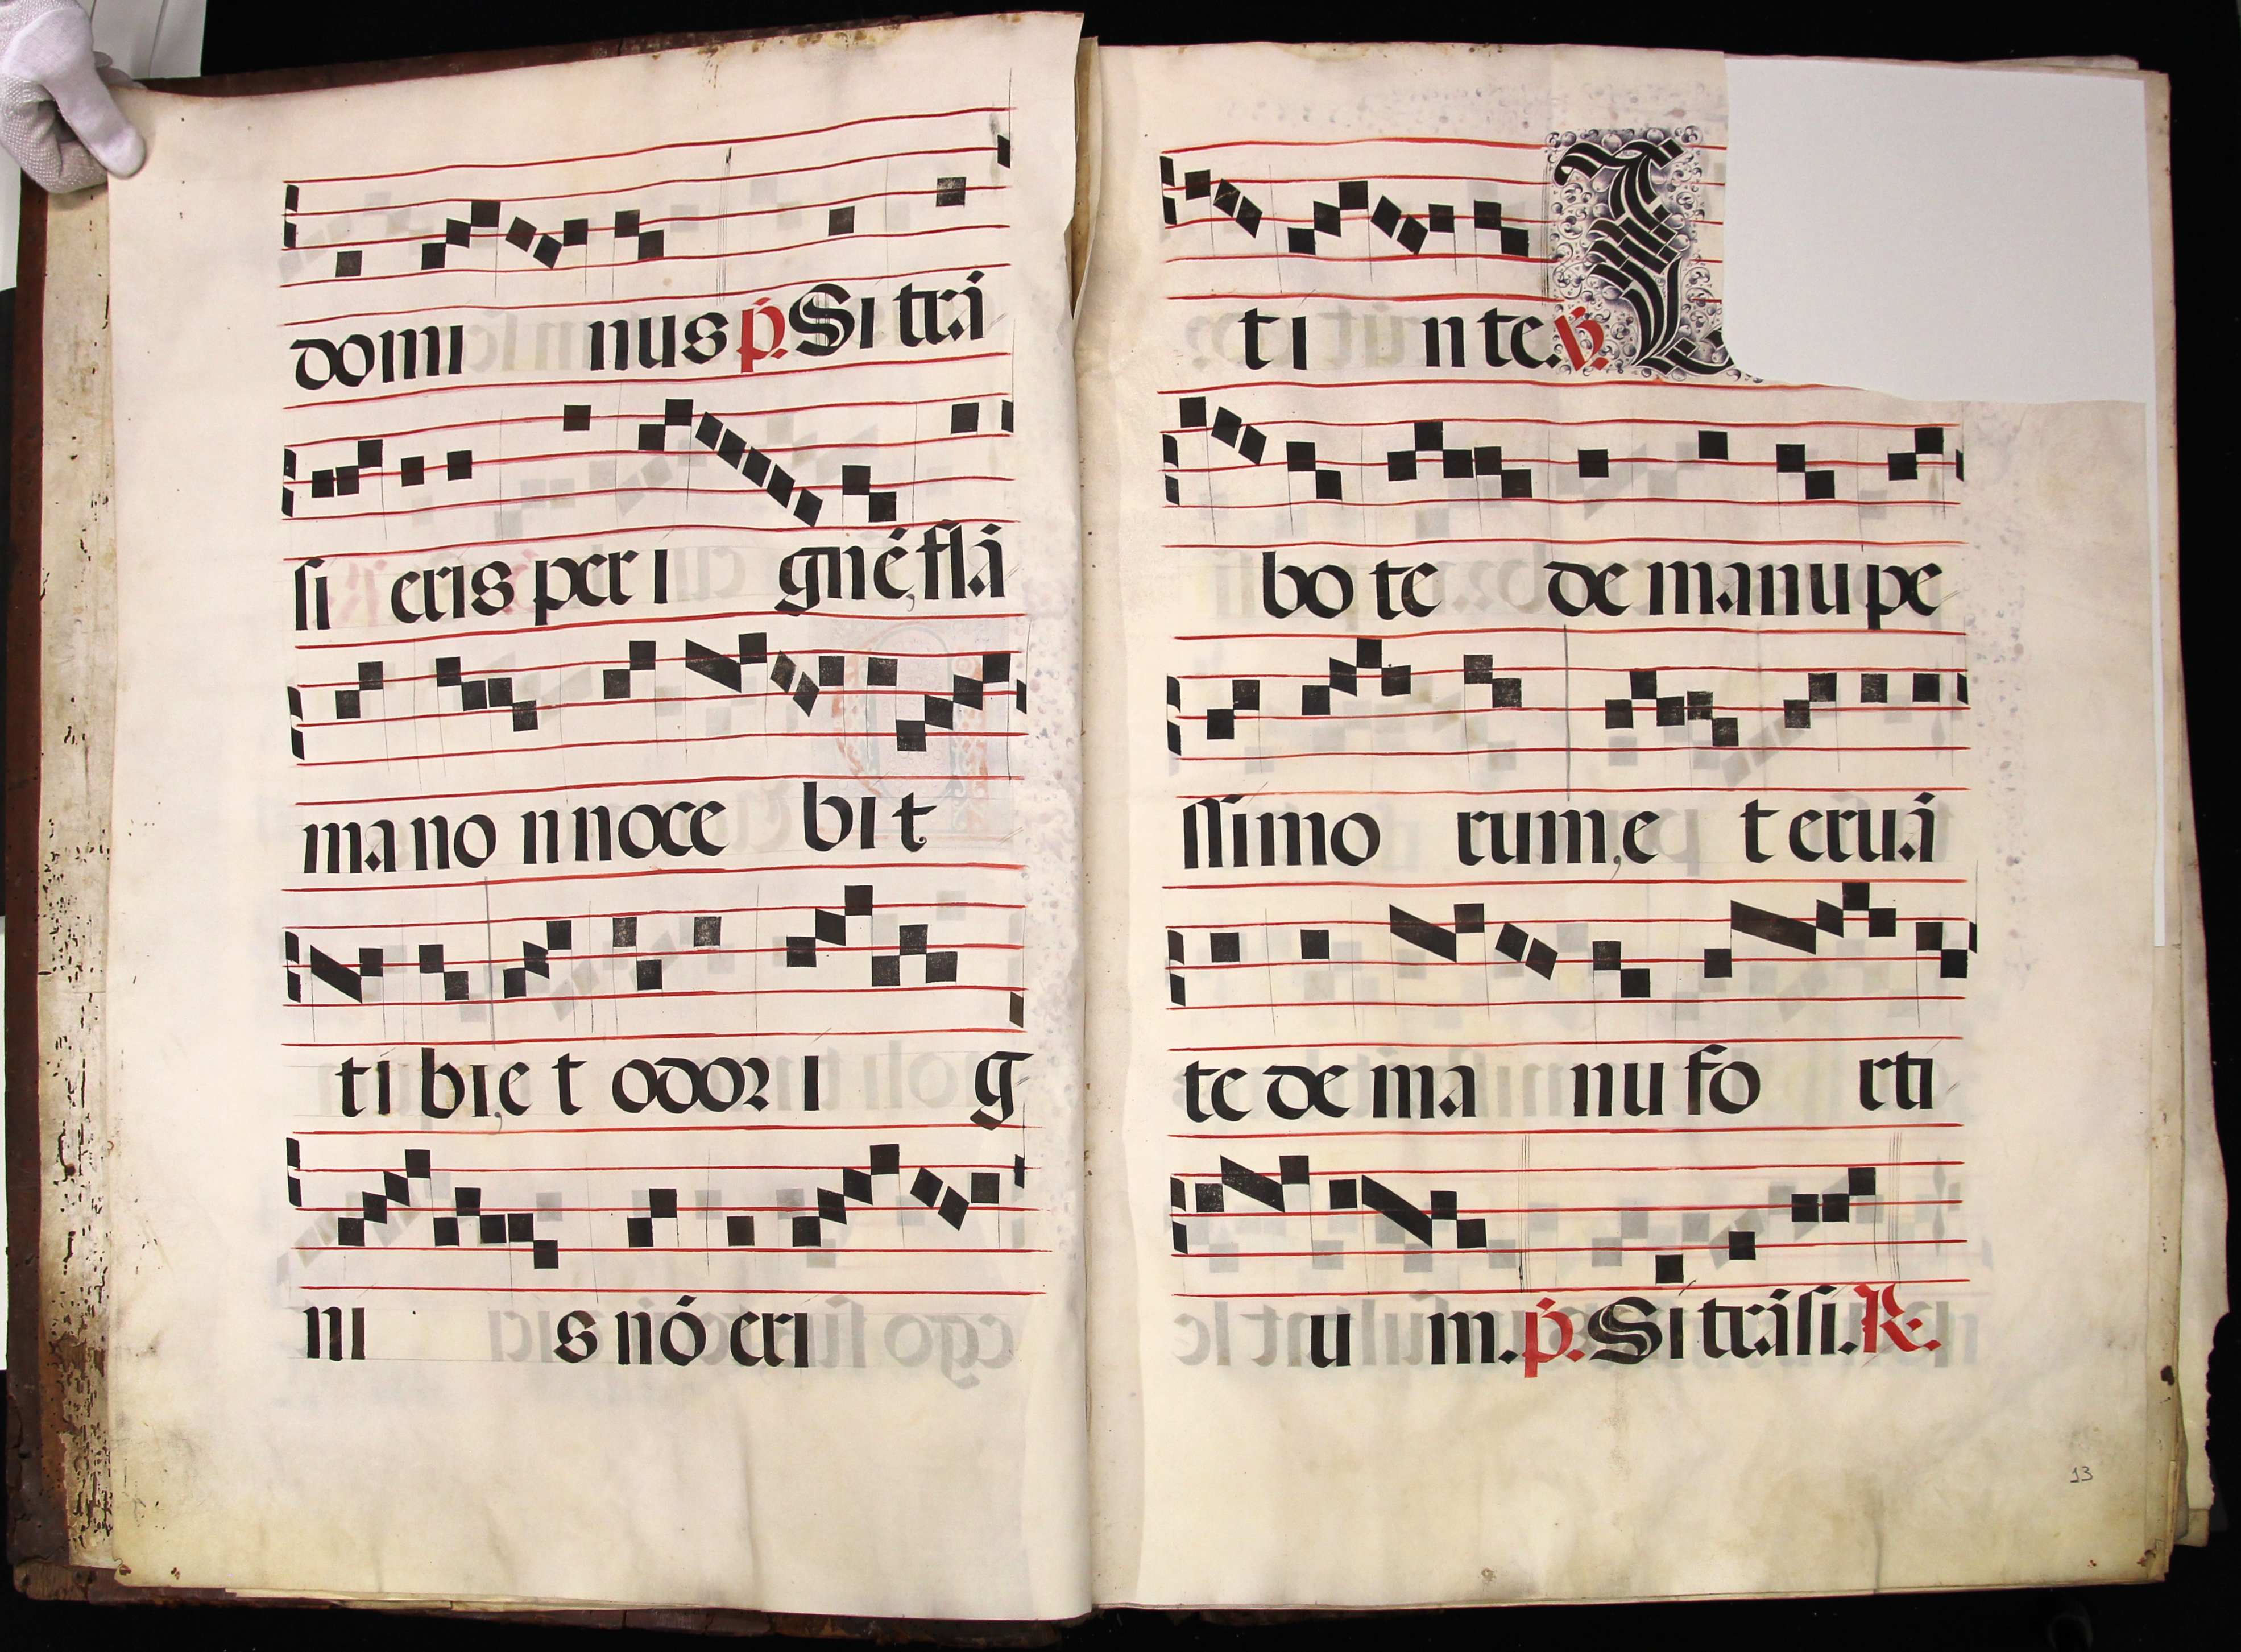 domi nus p̄. Si trā
si eris per i gnē, flā
ma no n noce bi t
ti bi, e t odor i g
ni s nō eri
ti n te. V̄. L
bo te de manu pe
ssimo rum, e t eruā
te de ma nu fo rti
u m. p̄. Si trāsi. R.
13